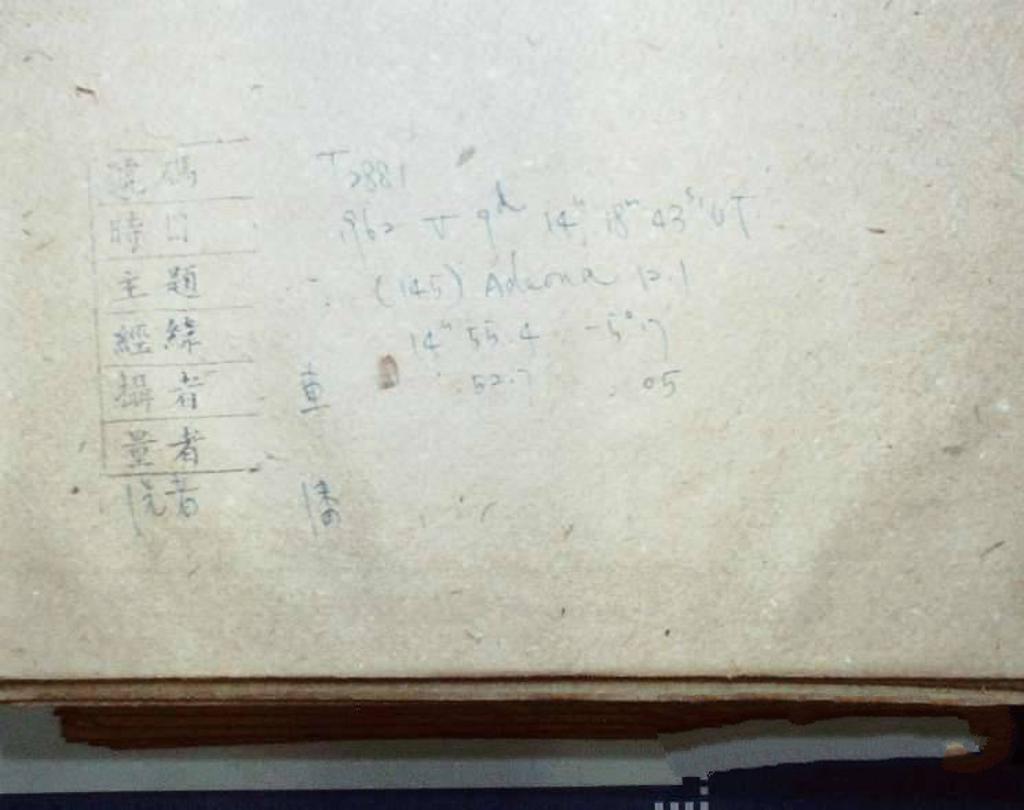 號碼 T2881
時日 1962 V 9d 14h 18m 43s UT
主題 (145) Adeona 12.1
經緯 14h 55.4 -5°.7
攝者 52.7 .05
量者